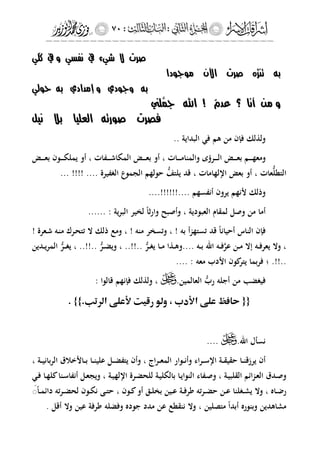 إشراقات الإسراء : الجزء الثاني : الباب الثالث : ٧٠ نوري محمدي
صرت لا شيء في نفسي و في كلي
به تنزه صرت الآن موجودا
به وجودي و إمدادي به حولي
و من أنا ؟ عدم ! الله جمَّلني
فصرت صورته العليا بلا نيل
ولذلك فإن من هم في البداية ..
ومعهــم بعــض الــرؤى والمنامــات ، أو بعــض المكاشــفات ، أو يملكــون بعــض
التطلُّعات ، أو بعض الإلهامات ، قد يلتفُّ حولهم الجموع الغفيرة .... !!!! ...
وذلك لأنهم يرون أنفسهم ....!!!!!!....
أما من وصل لمقام العبودية ، وأصبح وارثاً لخير البرية : ......
فإن الناس أحياناً قد تستهزأ به ! ، وتسخر منه ! ، ومع ذلك لا تتحرك منه شعرة !
، ولا يعرفه إلا من عرَّفه الله به ....وهذا ما يغرُّ ..!!.. ، ويضرُّ ..!!.. ، يغرُّ المريدين
..!!. ؛ فربما يتركون الأدب معه : ....
فيغضب من أجله ربُّ العالمين. ، ولذلك فإنهم قالوا :
{{ حافظ على الأدب ، ولو رقيت لأعلى الرتب.}} .
نسأل الله. ....
أن يرزقنا حقيقة الإسراء وأنوار المعراج ، وأن يتفضل علينا بالأخلاق الربانية ،
وصدق العزائم القلبية ، وصفاء النوايا بالكلية للحضرة الإلهية ، ويجعل أنفاسنا كلها في
رضاه ، ولا يشغلنا عن حضرته طرفة عين بخلق أو كون ، حتى نكون لحضرته دائماً
مشاهدين وبنوره أبداً متصلين ، ولا ننقطع عن مدد جوده وفضله طرفة عين ولا أقل .